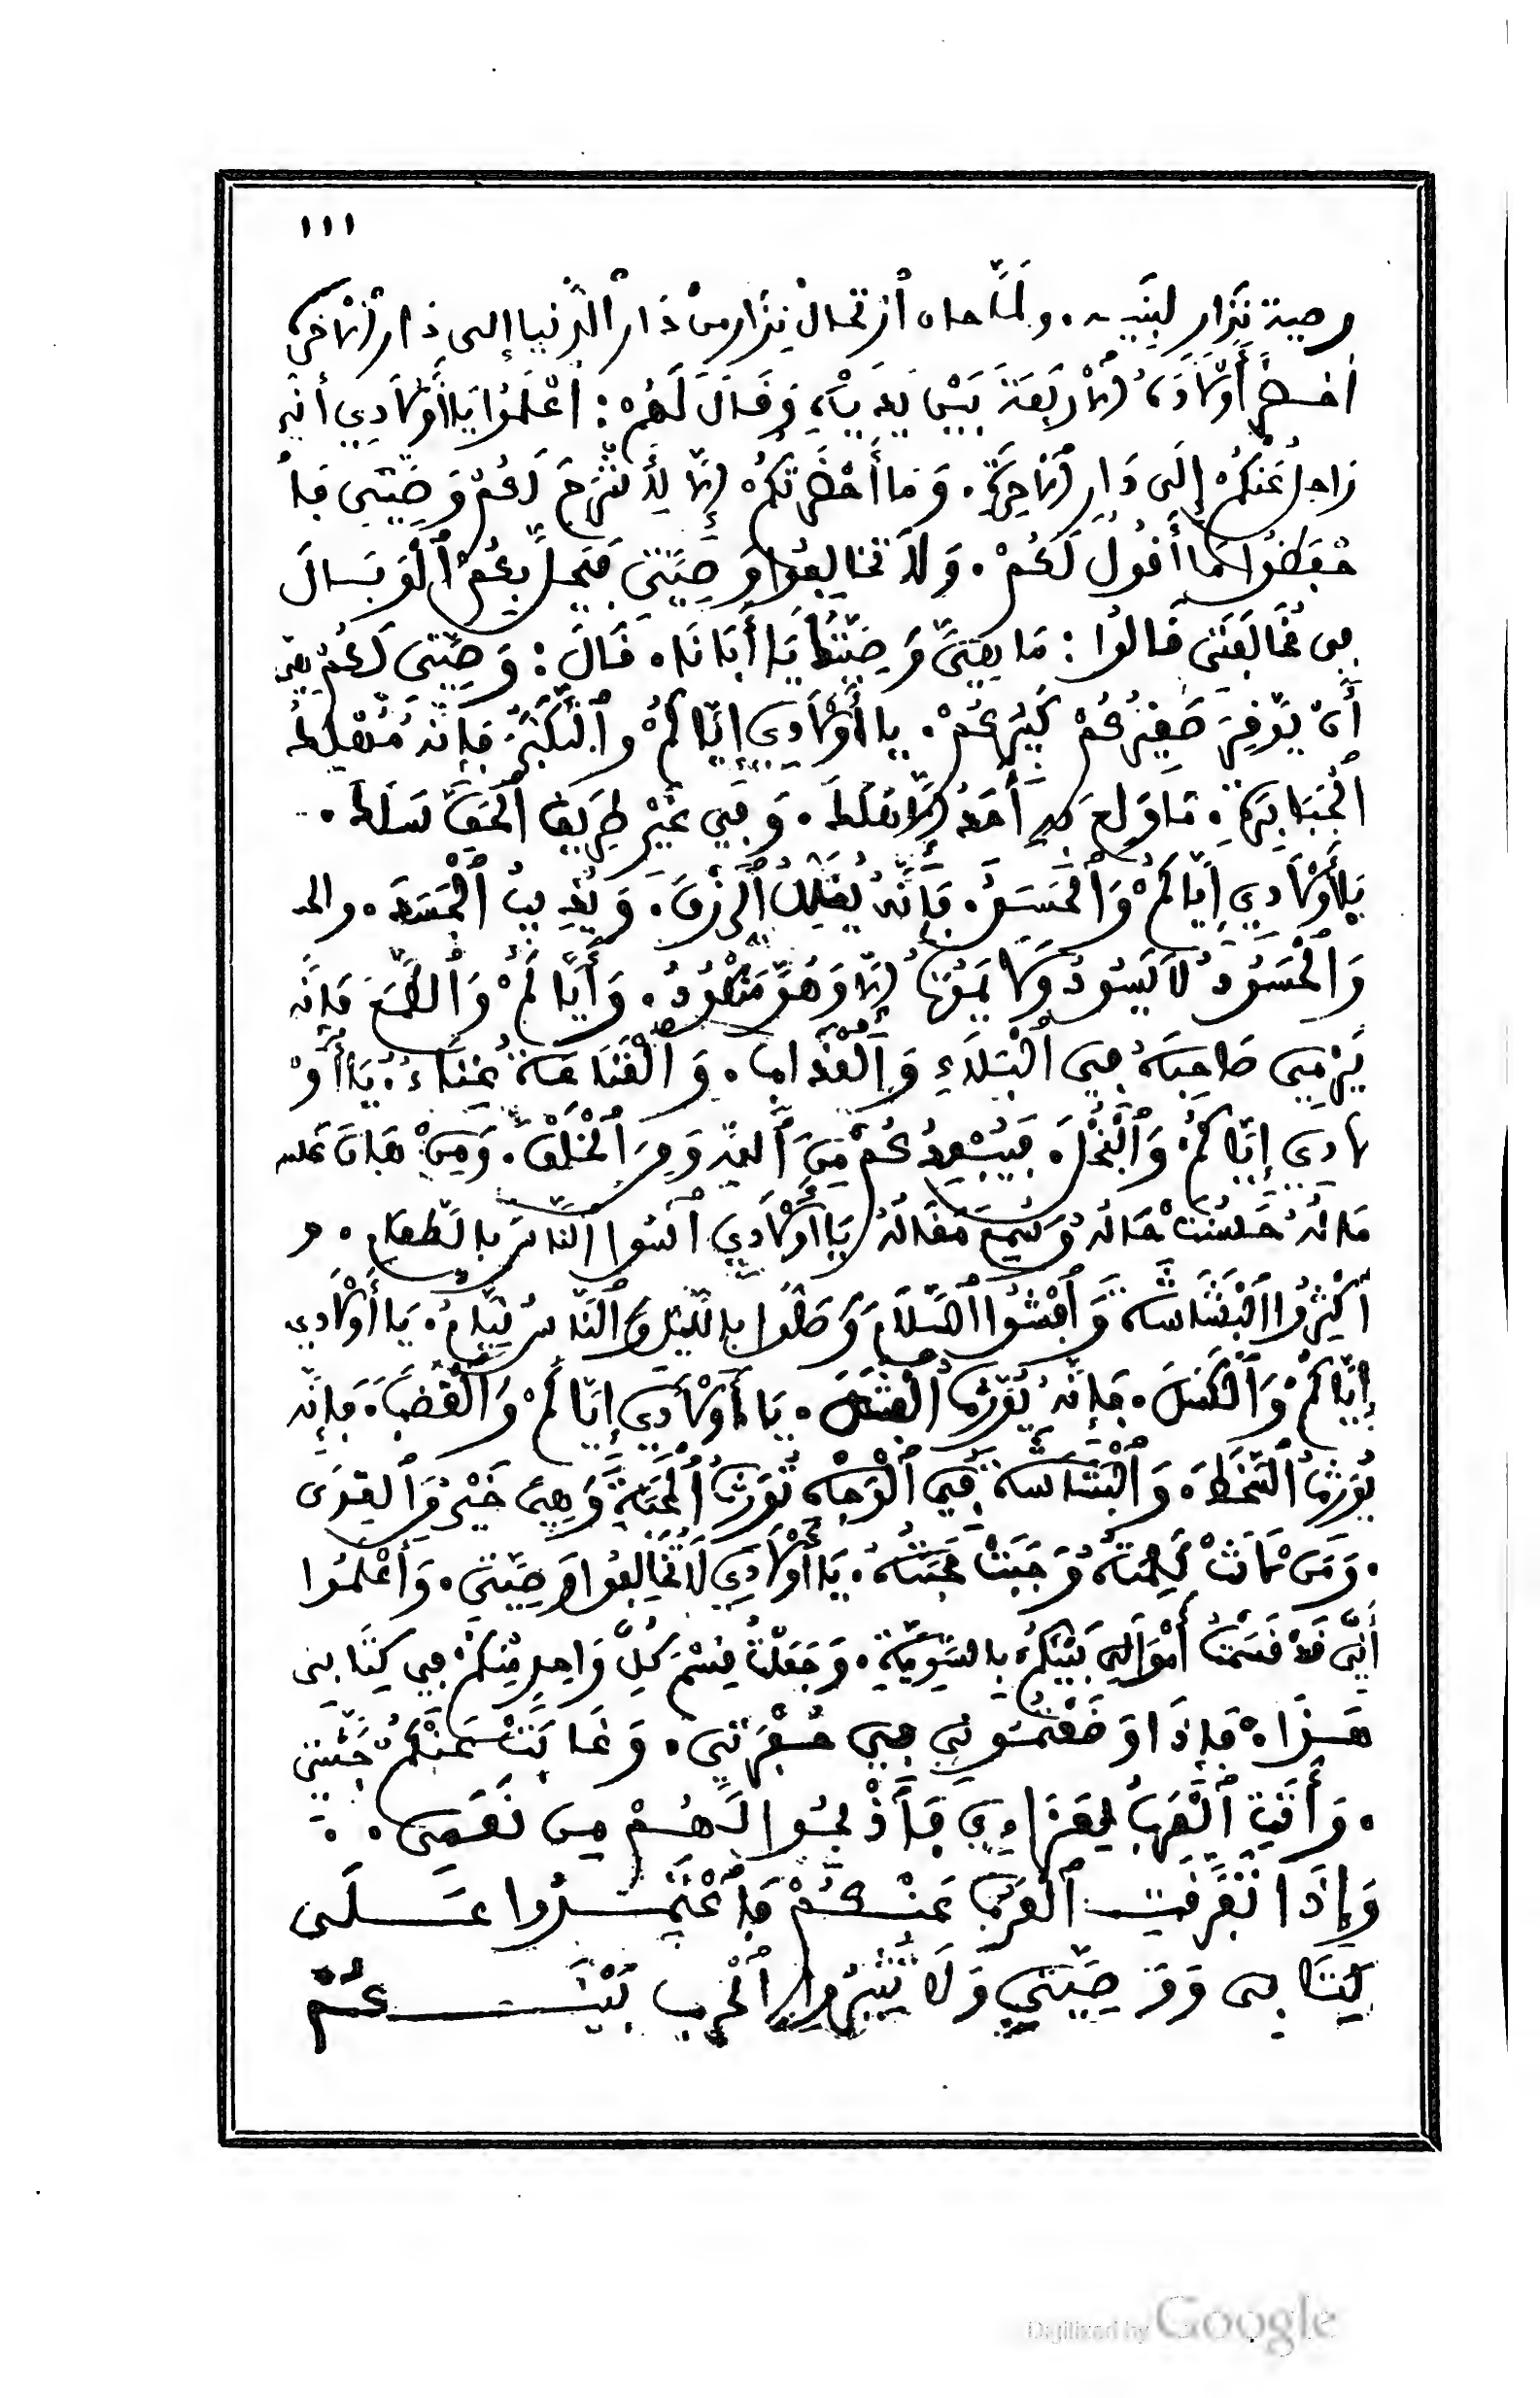 ١١١
وصية نِزَار لِبَنِيهِ. ولَمَّا حان ٱرْتحال نِزَار من دَار ٱلدُّنيا إلى دَار ٱلْأخرى
أحضر أَوْلَادَهُ ٱلْأَرْبَعَةَ بَيْنَ يَدَيْهِ وَقَالَ لَهُمْ: ٱعْلَمُوا يَا أَوْلَادِي أنِّي
رَاحِلٌ عَنْكُمْ إِلَى دَارِ ٱلْآخِرَةِ. وَمَا أَحْضَرْتُكُمْ إِلَّا لِأَشْرَحَ لَكُمْ وَصِيَّتِي فَٱ
حْفَظُوا مَا أَقُولُ لَكُمْ. وَلَا تُخَالِفُوا وَصِيَّتِي فَيَحِلَّ بِكُمُ ٱلْوَبَالَ
مِن مُخَالَفَتِي قَالُوا: مَا هِيَ وَصِيَّتُكَ يَا أَبَانَا. قَالَ: وَصِيَّتِي لَكُمْ هِيَ
أَنْ يُوَقِّرَ صَغِيرُكُمْ كَبِيرَكُمْ. يا أَوْلَادِي إِيَّاكُمْ وٱلتَّكَبُّرَ فَإِنَّهُ مُهْلِكُ
ٱلْجَبَابِرَةِ. مَا وَلِعَ بِهِ أَحَدٌ إِلَّا هَلَكَ. وَفِي غَيْرِ طَرِيقِ ٱلْحَقِّ سَلَكَ.
يَا أَوْلَادِي إِيَّاكُمْ وَٱلْحَسَدَ. فَإِنَّهُ يُقَلِّلُ ٱلرِّزْقَ. وَيُذِيبُ ٱلْجَسَدَ. والحـ
وَٱلْحَسُودُ لَا يَسُودُ وَلَا يَمُوتُ إِلَّا وَهُوَ مَنْكُودٌ. وَإِيَّاكُمْ وَٱلطَّمَعَ فَإِنَّه
يَرْمِي صَاحِبَهُ فِي ٱلْبَلَاءِ وَٱلْعَذَابِ. وَٱلْقَنَاعَةُ غِنَاءٌ. يَا أَوْ
لَادِي إِيَّاكُمْ وَٱلْبُخْلَ. فَيُبْعِدُكُمْ مِنَ ٱللهِ وَمِنَ ٱلْخَلْقِ. وَمَنْ هَانَ عَلَيه
مَالُهُ حَسُنَتْ حَالُهُ وَسُمِعَ مَقَالُهُ يَا أَوْلَادِي ٱلناسَ بالطعام. و
أَكْثِرُوا ٱلْبَشَاشَةَ وَأَفْشُوا ٱلسَّلَامَ وَصَلُّوا بِاللَّيْلِ وَٱلنَّاسُ نِيَامٌ. يَا أَوْلَادِي
إِيَّاكُمْ وَٱلْكَسَلَ. فَإِنَّهُ يُوَرِّثُ ٱلْفَشَلَ. يَا أَوْلَادِي إِيَّاكُمْ وَٱلْغَضَبَ. فَإِنَّه
يُورِثُ ٱلسَّخَطَ. وَٱلْبَشَاشَةُ فِي ٱلْوَجْهِ تُورِثُ ٱلْمَحَبَّةَ وَهِيَ خَيْرٌ مِنَ ٱلْقِرَى
. وَمَنْ لَانَتْ كَلِمَتُهُ وَجَبَتْ مَحَبَّتُهُ. يَا أَوْلَادِي لَا تُخَالِفُوا وَصِيَّتِي. وَٱعْلَمُوا
أَنِّي قَدْ قَسَمْتُ أَمْوَالِي بَيْنَكُمْ بِالسَّوِيَّةِ. وَجَعَلْتُ قِسْمَ كُلِّ وَاحِدٍ مِنْكُمْ فِي كِتَابِي
هَـذَا. فَإِذَا وَضَعْتُمُونِي فِي حُفْرَتِي. وَغَابَتْ عَنْكُمْ جُثَّتِي
. وَأَتَتِ ٱلْعَرَبُ لِعَزَاءِي فَٱذْبَحُوا لَـهُـمْ مِن نَعَمِي.
وَإِذَا تَفَرَّقَتِ ٱلْعَرَبُ عَنْـكُـمْ فَٱعْتَمِـدُوا عَـلَـى
كِتَابِي وَوَصِيَّتِي وَلَا تُثِيرُوا ٱلْحَرْبَ بَيْنَـكُمْ
Digitized by Google